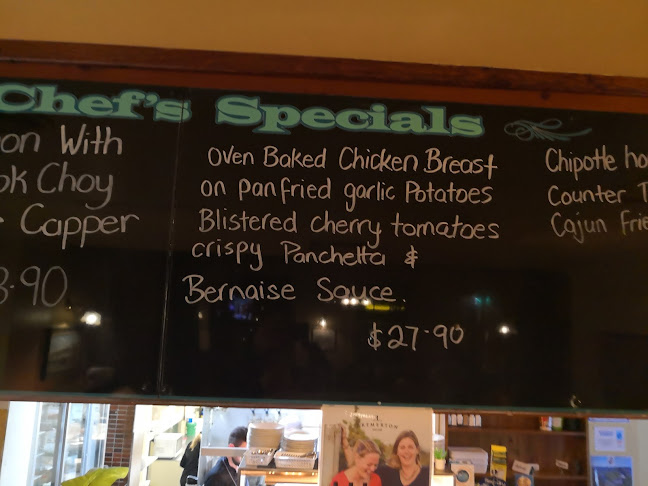 Chef's Specials
on With
ok Choy
Capper
.90
Oven Baked Chicken Breast
on panfried garlic Potatoes
Blistered cherry tomatoes
crispy Panchetta &
Bernaise Sauce.
$27.90
Chipotle ho
Counter T
Cajun Frie